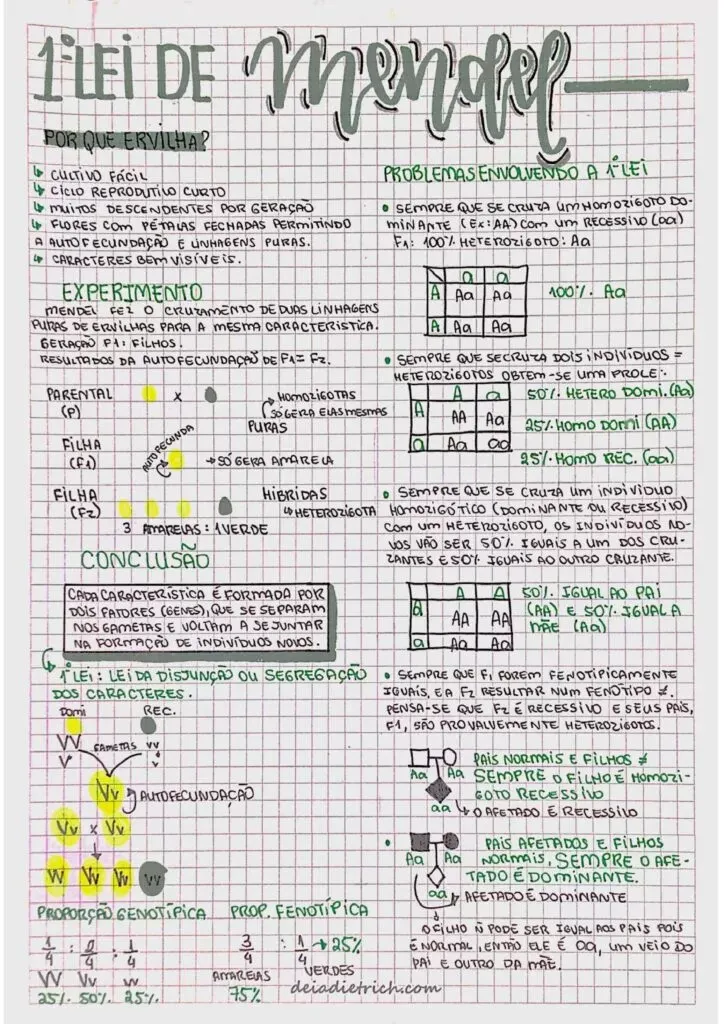 1ª LEI DE mendel
POR QUE ERVILHA?
↳ CULTIVO FÁCIL
↳ CICLO REPRODUTIVO CURTO
↳ MUITOS DESCENDENTES POR GERAÇÃO
↳ FLORES COM PÉTALAS FECHADAS PERMITINDO
A AUTOFECUNDAÇÃO E LINHAGENS PURAS.
↳ CARACTERES BEM VISÍVEIS.
EXPERIMENTO
MENDEL FEZ O CRUZAMENTO DE DUAS LINHAGENS
PURAS DE ERVILHAS PARA A MESMA CARACTERISTICA.
GERAÇÃO F1: FILHOS.
RESULTADOS DA AUTOFECUNDAÇÃO DE F1 = F2.
PARENTAL x → HOMOZIGOTAS
(P) SÓ GERA ELAS MESMAS
PURAS
FILHA AUTOFECUNDA
(F1) → SÓ GERA AMARELA
FILHA HÍBRIDAS
(F2) ↳ HETEROZIGOTA
3 AMARELAS : 1 VERDE
CONCLUSÃO
CADA CARACTERÍSTICA É FORMADA POR
DOIS FATORES (GENES), QUE SE SEPARAM
NOS GAMETAS E VOLTAM A SE JUNTAR
NA FORMAÇÃO DE INDIVÍDUOS NOVOS.
1ª LEI: LEI DA DISJUNÇÃO OU SEGREGAÇÃO
DOS CARACTERES.
Domi REC.
VV GAMETAS vv
V v
Vv AUTOFECUNDAÇÃO
Vv x Vv
VV Vv Vv vv
PROPORÇÃO GENOTÍPICA
1/4 : 2/4 : 1/4
VV Vv vv
25% 50% 25%
PROP. FENOTÍPICA
3/4 : 1/4 → 25%
AMARELAS VERDES
75%
PROBLEMAS ENVOLVENDO A 1ª LEI
• SEMPRE QUE SE CRUZA UM HOMOZIGOTO DO-
MINANTE (EX: AA) COM UM RECESSIVO (aa)
F1: 100% HETEROZIGOTO: Aa
a a
A Aa Aa 100% Aa
A Aa Aa
• SEMPRE QUE SE CRUZA DOIS INDIVÍDUOS =
HETEROZIGOTOS OBTEM-SE UMA PROLE:
A a 50% HETERO DOMI. (Aa)
A AA Aa 25% HOMO DOMI (AA)
a Aa aa 25% HOMO REC. (aa)
• SEMPRE QUE SE CRUZA UM INDIVÍDUO
HOMOZIGÓTICO (DOMINANTE OU RECESSIVO)
COM UM HETEROZIGOTO, OS INDIVÍDUOS NO-
VOS VÃO SER 50% IGUAIS A UM DOS CRU-
ZANTES E 50% IGUAIS AO OUTRO CRUZANTE.
A A 50% IGUAL AO PAI
A AA AA (AA) E 50% IGUAL A
a Aa Aa MÃE (Aa)
• SEMPRE QUE F1 FOREM FENOTIPICAMENTE
IGUAIS, E A F2 RESULTAR NUM FENÓTIPO ≠.
PENSA-SE QUE F2 É RECESSIVO E SEUS PAIS,
F1, SÃO PROVALMENTE HETEROZIGOTOS.
PAIS NORMAIS E FILHOS ≠
Aa Aa SEMPRE O FILHO É HOMOZI-
GOTO RECESSIVO
aa ↳ O AFETADO É RECESSIVO
• PAIS AFETADOS E FILHOS
Aa Aa NORMAIS, SEMPRE O AFE-
TADO É DOMINANTE.
aa → AFETADO É DOMINANTE
O FILHO Ñ PODE SER IGUAL AOS PAIS POIS
É NORMAL, ENTÃO ELE É aa, UM VEIO DO
PAI E OUTRO DA MÃE.
deiadietrich.com